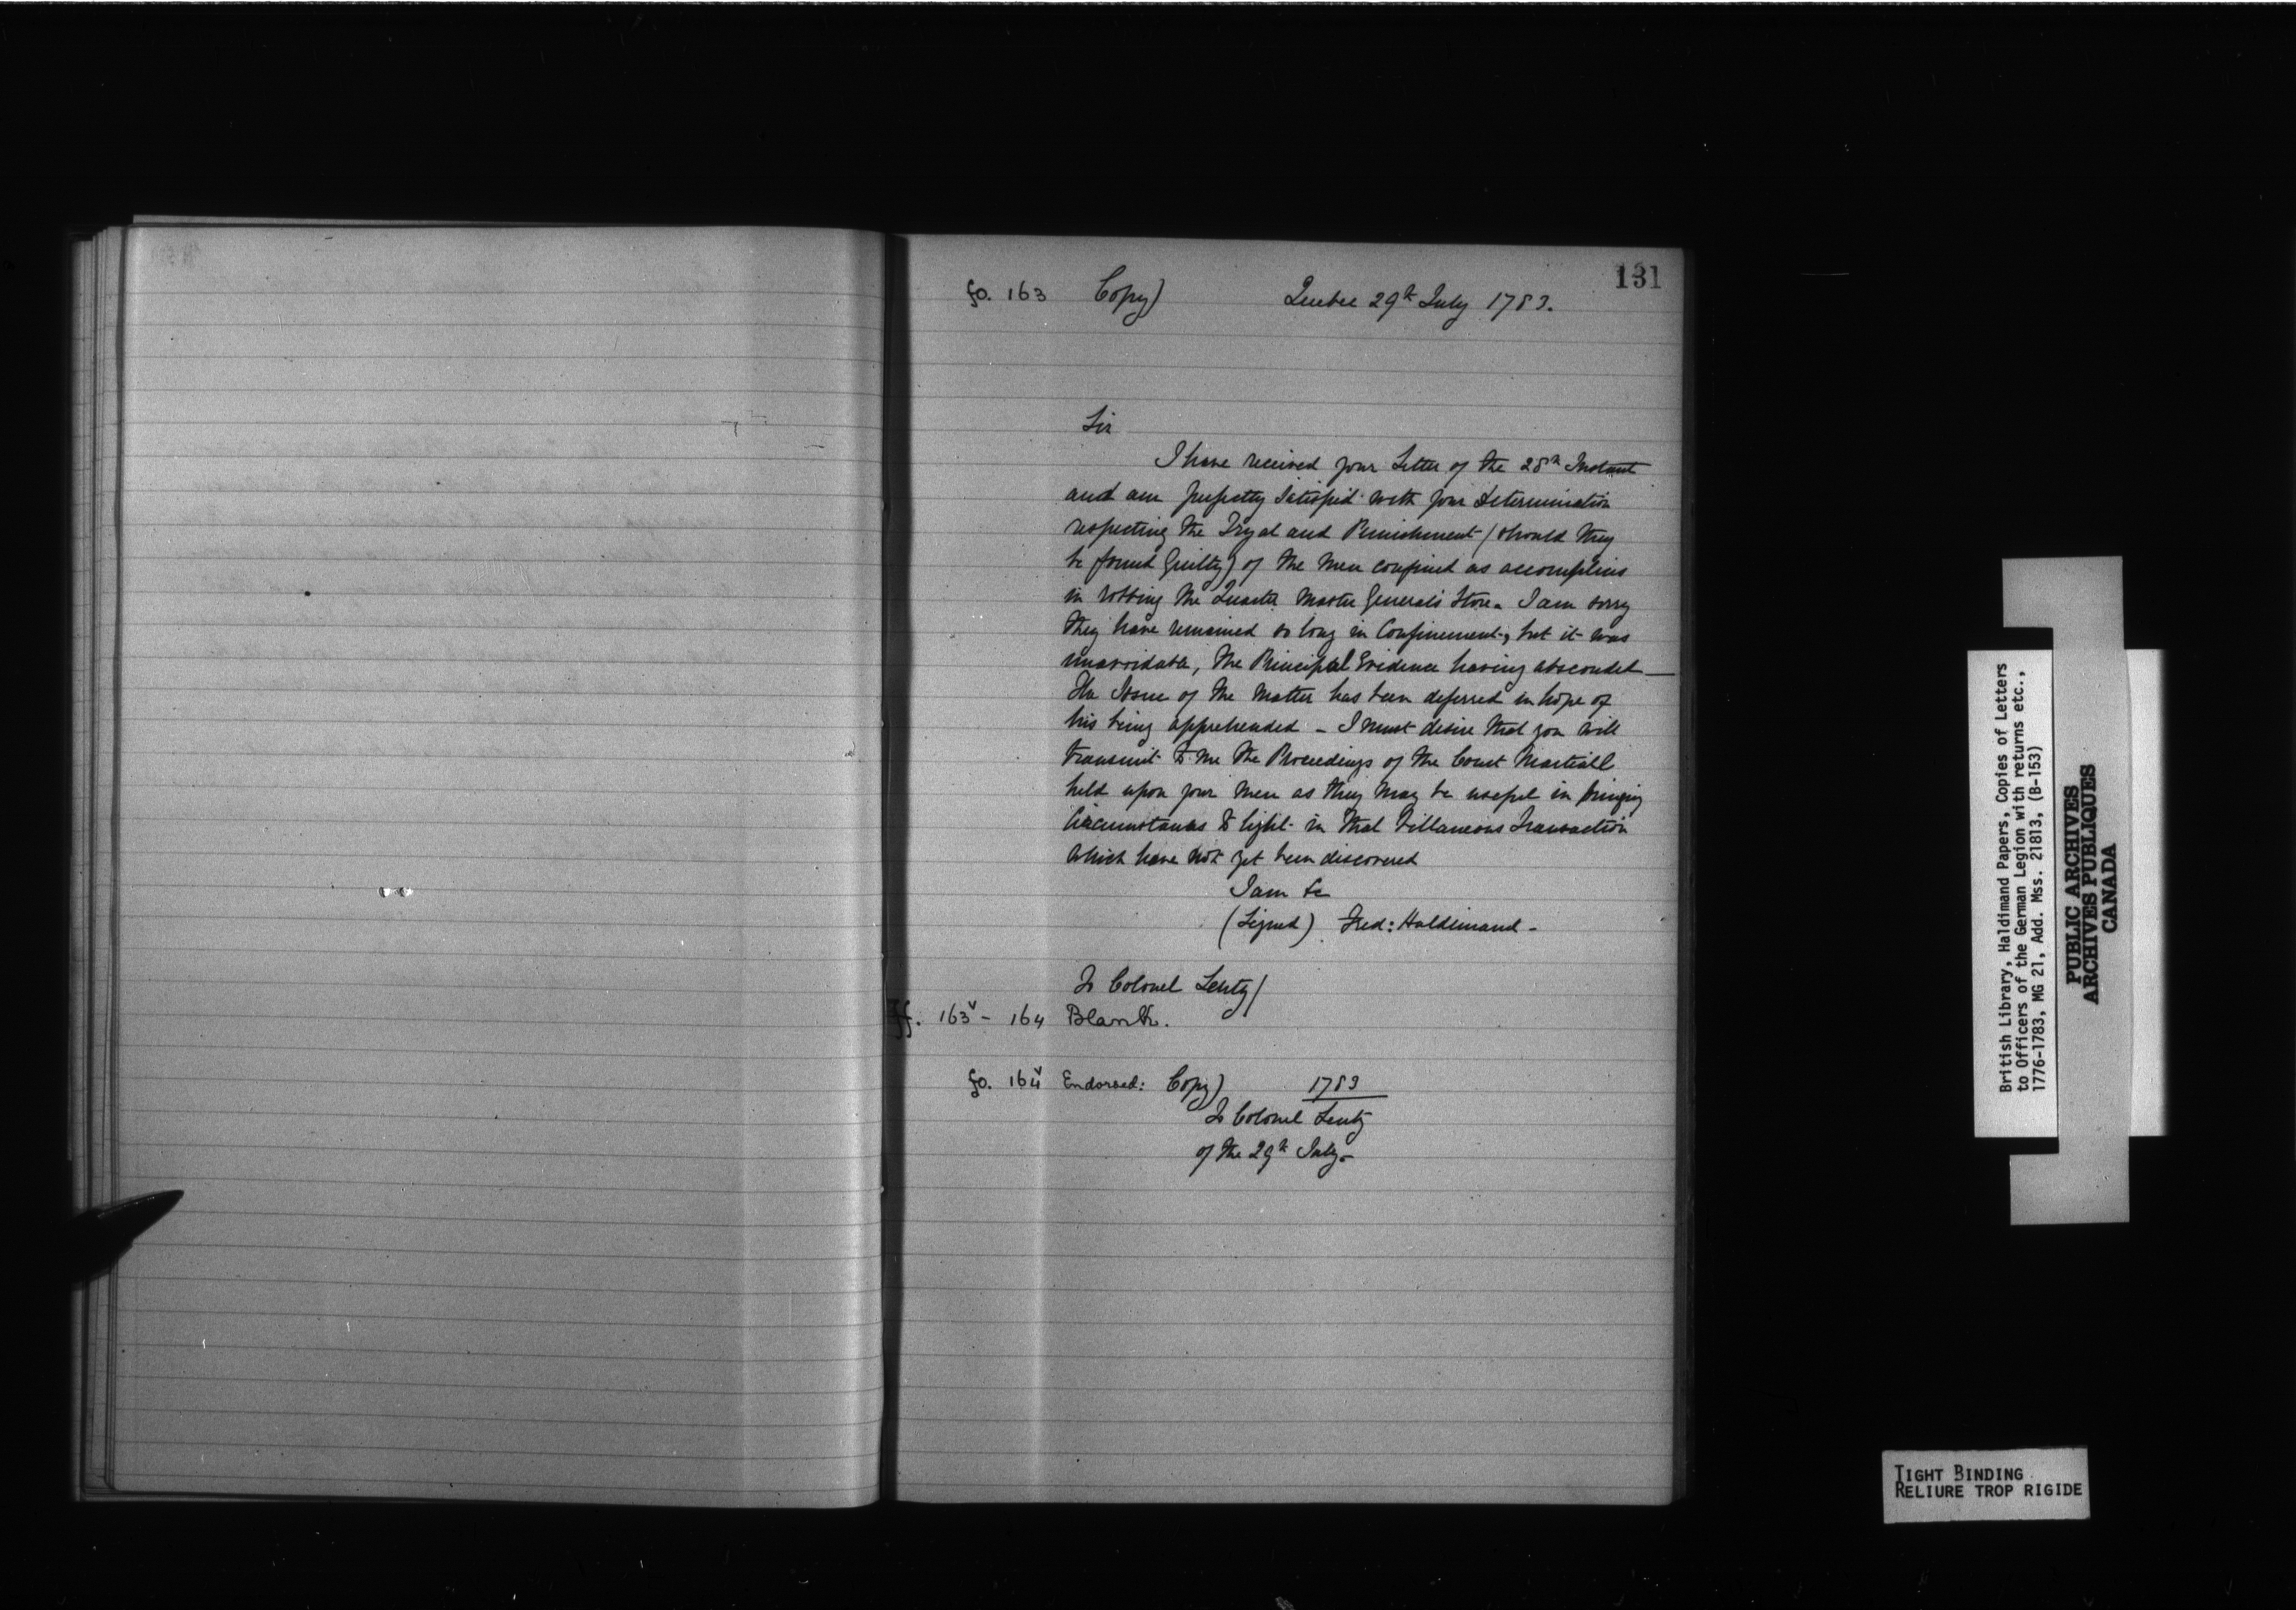 131
fo. 163 Copy) Quebec 29th July 1783.
Sir
I have received your Letter of the 28th Instant
and am perfectly Satisfied with your Determination
respecting the Tryal and Punishment (should they
be found Guilty) of the Men confined as accomplices
in robbing the Quarter Master General's Store. I am sorry
they have remained so long in Confinement, but it was
unavoidable, the Principal Evidence having absconded —
The Issue of the Matter has been deferred in hope of
his being apprehended - I must desire that you will
transmit to me the Proceedings of the Court Martiall
held upon your Men as they may be useful in bringing
Circumstances to light in that Villaneous Transaction
which have not yet been discovered
I am &c
(Signed) Fred: Haldimand -
To Colonel Lentz/
ff. 163v - 164 Blank.
fo. 164v Endorsed: Copy) 1783
To Colonel Lentz
of the 29th July -
British Library, Haldimand Papers, Copies of Letters
to Officers of the German Legion with returns etc.,
1776-1783, MG 21, Add. Mss. 21813, (B-153)
PUBLIC ARCHIVES
ARCHIVES PUBLIQUES
CANADA
TIGHT BINDING
RELIURE TROP RIGIDE